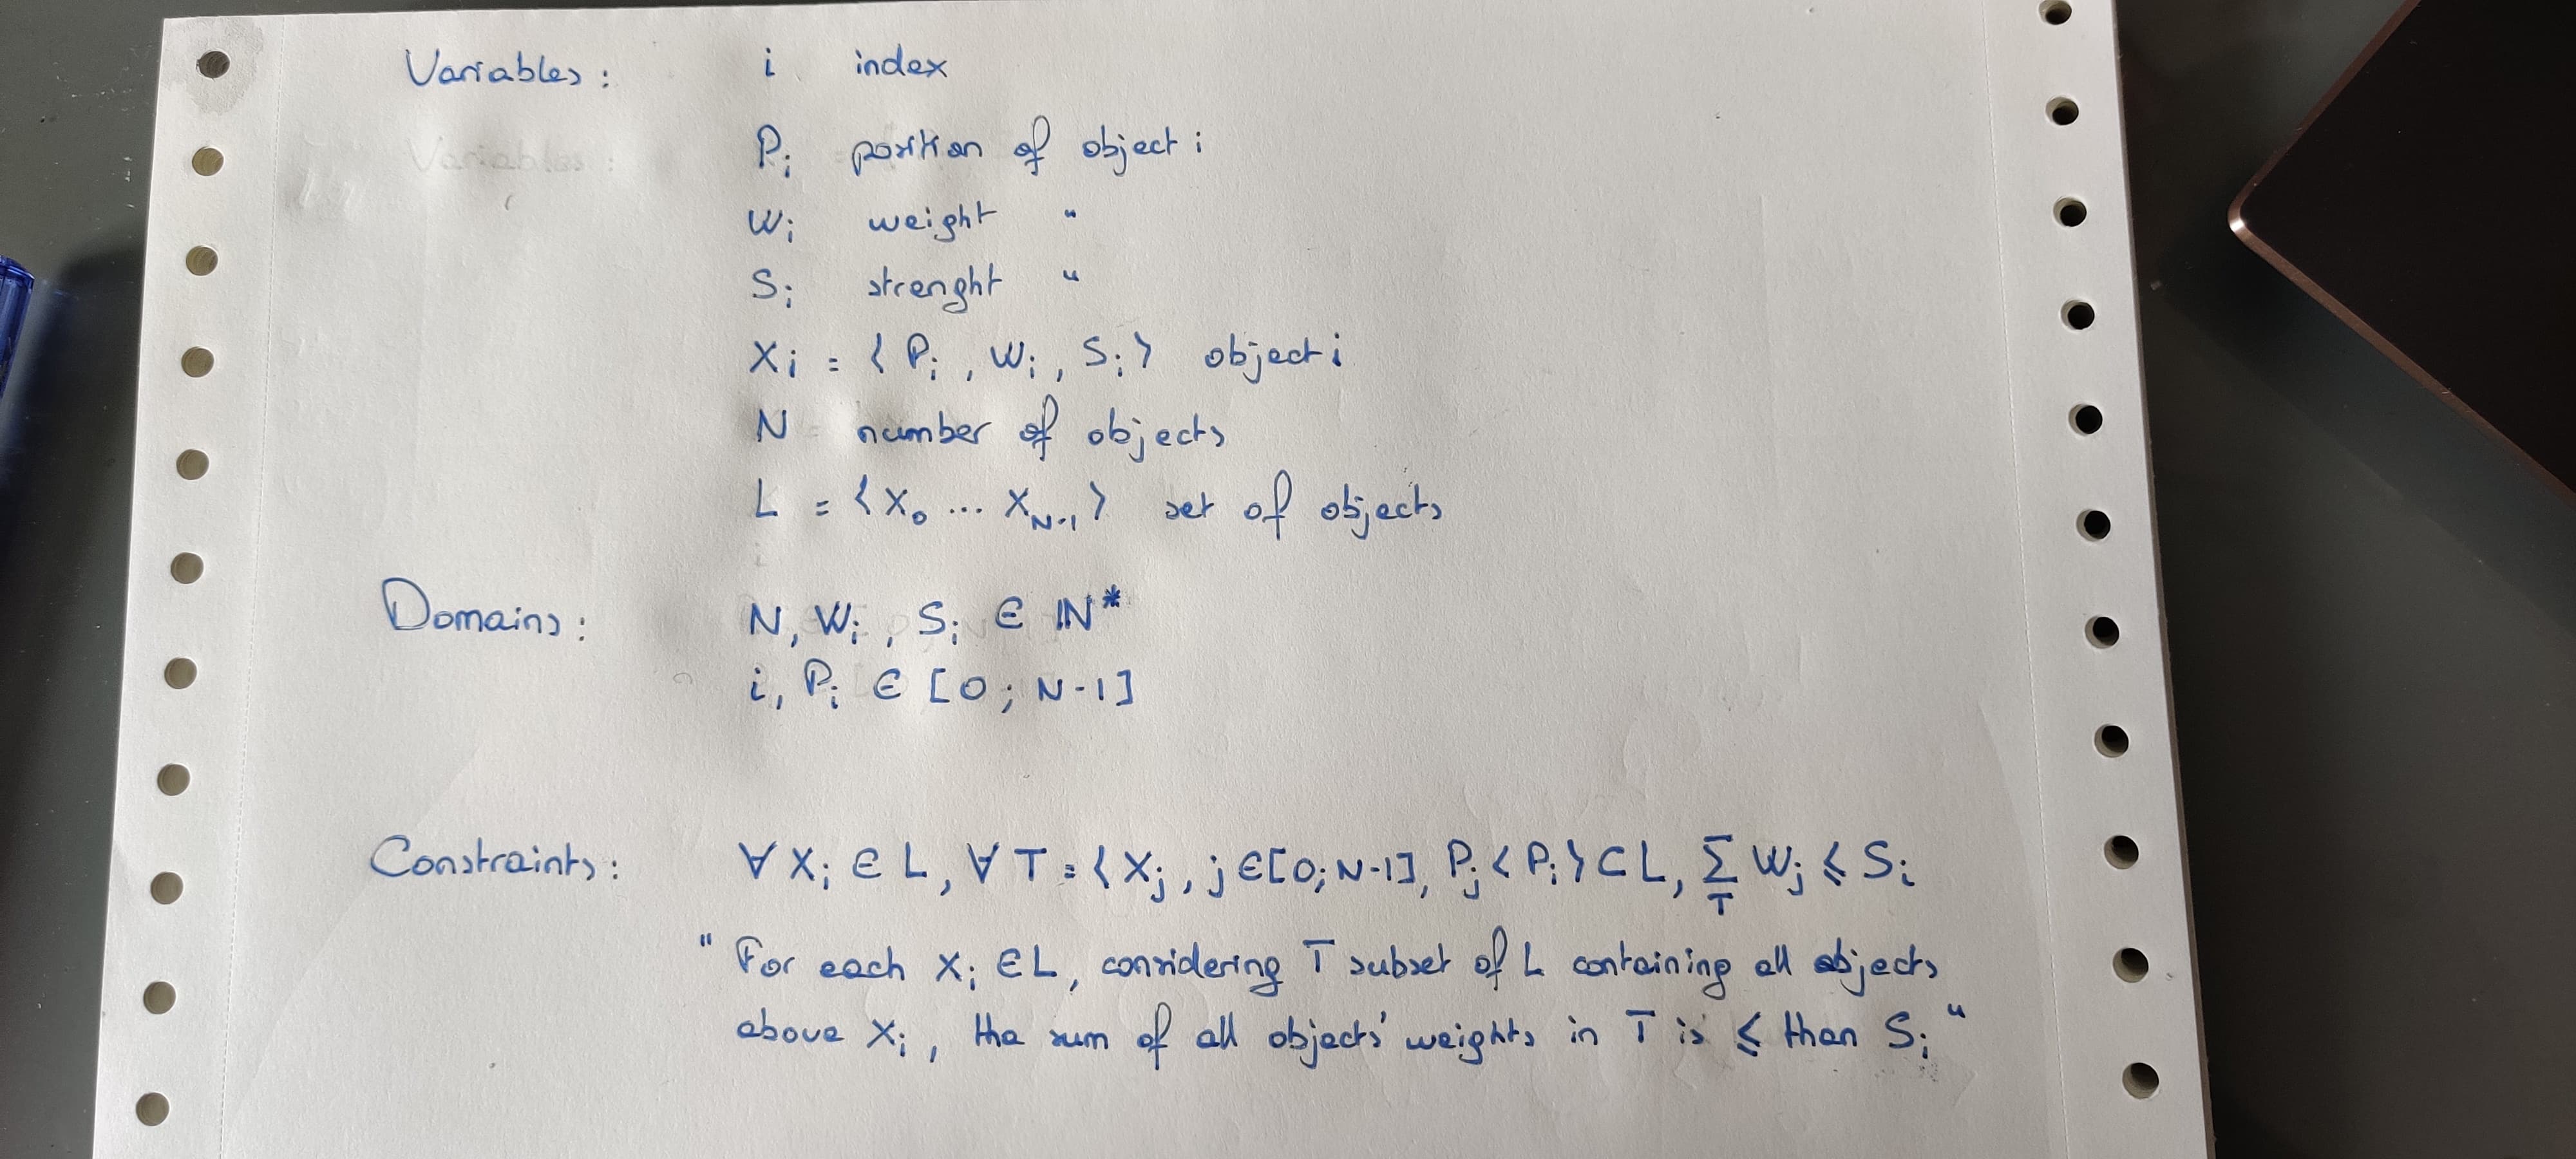 Variables : i index
Pi position of object i
Wi weight "
Si strenght "
Xi = < Pi , Wi , Si > object i
N = number of objects
L = < X0 ... XN-1 > set of objects
Domains : N, Wi , Si ∈ ℕ*
i, Pi ∈ [0 ; N-1]
Constraints : ∀ Xi ∈ L, ∀ T = < Xj , j ∈ [0; N-1], Pj < Pi > ⊂ L, ∑T Wj ≤ Si
" For each Xi ∈ L, considering T subset of L containing all objects
above Xi , the sum of all objects' weights in T is ≤ than Si "